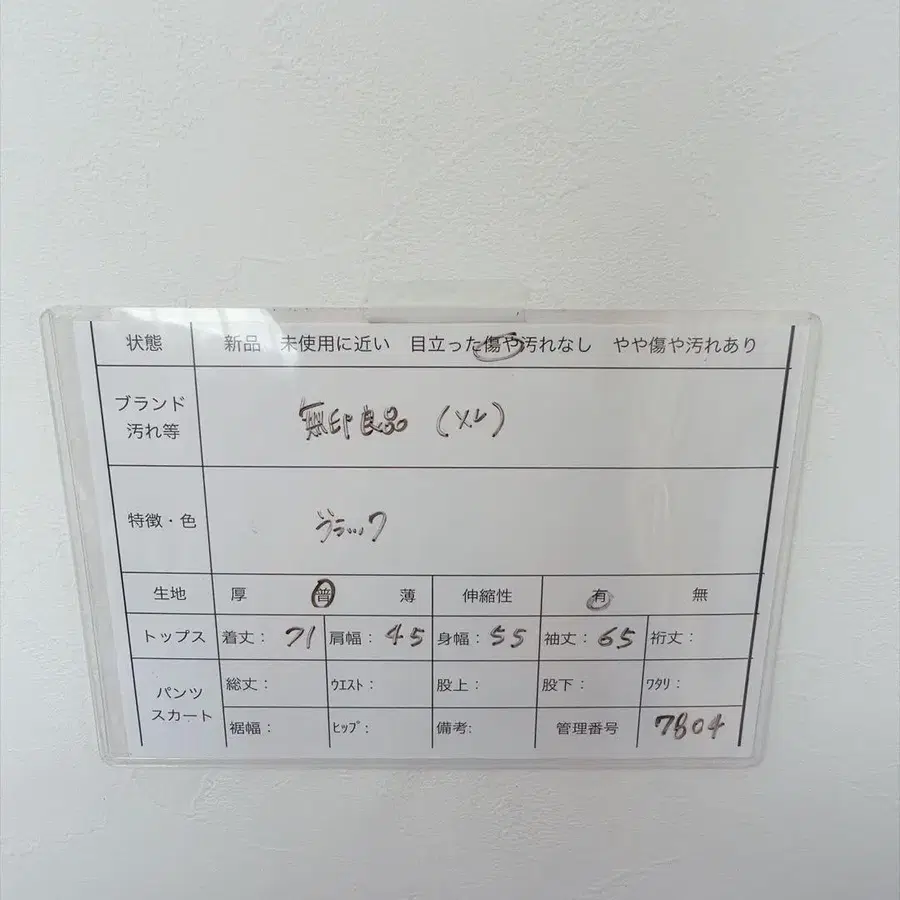 状態 新品 未使用に近い 目立った傷や汚れなし やや傷や汚れあり
ブランド
汚れ等
無印良品 (XL)
特徴・色 ブラック
生地 厚 普 薄 伸縮性 有 無
トップス 着丈: 71 肩幅: 45 身幅: 55 袖丈: 65 裄丈:
パンツ
スカート
総丈: ウエスト: 股上: 股下: ワタリ:
裾幅: ヒップ: 備考: 管理番号 7804